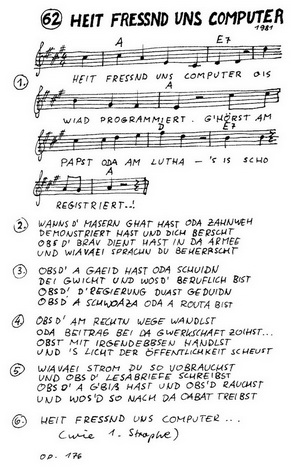 62 HEIT FRESSND UNS COMPUTER
1981
A E7
HEIT FRESSND UNS COMPUTER OIS
1.
A
WIAD PROGRAMMIERT. G'HÖRST AM
D E7
PAPST ODA AM LUTHA – 'S IS SCHO
A
REGISTRIERT..!
2. WANNS D' MASERN GHAT HAST ODA ZAHNWEH
DEMONSTRIERT HAST UND DICH BERSCHT
OBS D' BRAV DIENT HAST IN DA ARMEE
UND WIAVAEI SPRACHN DU BEHERRSCHT
3. OBSD' A GAEID HAST ODA SCHUIDN
DEI GWICHT UND WOSD' BERUFLICH BIST
OBSD' D'REGIERUNG DUAST GEDUIDN
OBSD' A SCHWOAZA ODA A ROUTA BIST
4. OBS D' AM RECHTN WEGE WANDLST
ODA BEITRAG BEI DA GWERKSCHAFT ZOIHST...
OBST MIT IRGENDEBBSEN HANDLST
UND 'S LICHT DER ÖFFENTLICHKEIT SCHEUST
5. WIAVAEI STROM DU SO VOBRAUCHST
UND OBS D' LESABRIEFE SCHREIBST
OBS D' A G'BIß HAST UND OBS'D RAUCHST
UND WOS'D SO NACH DA OABAT TREIBST
6. HEIT FRESSND UNS COMPUTER ...
(wie 1. Strophe)
OP. 176